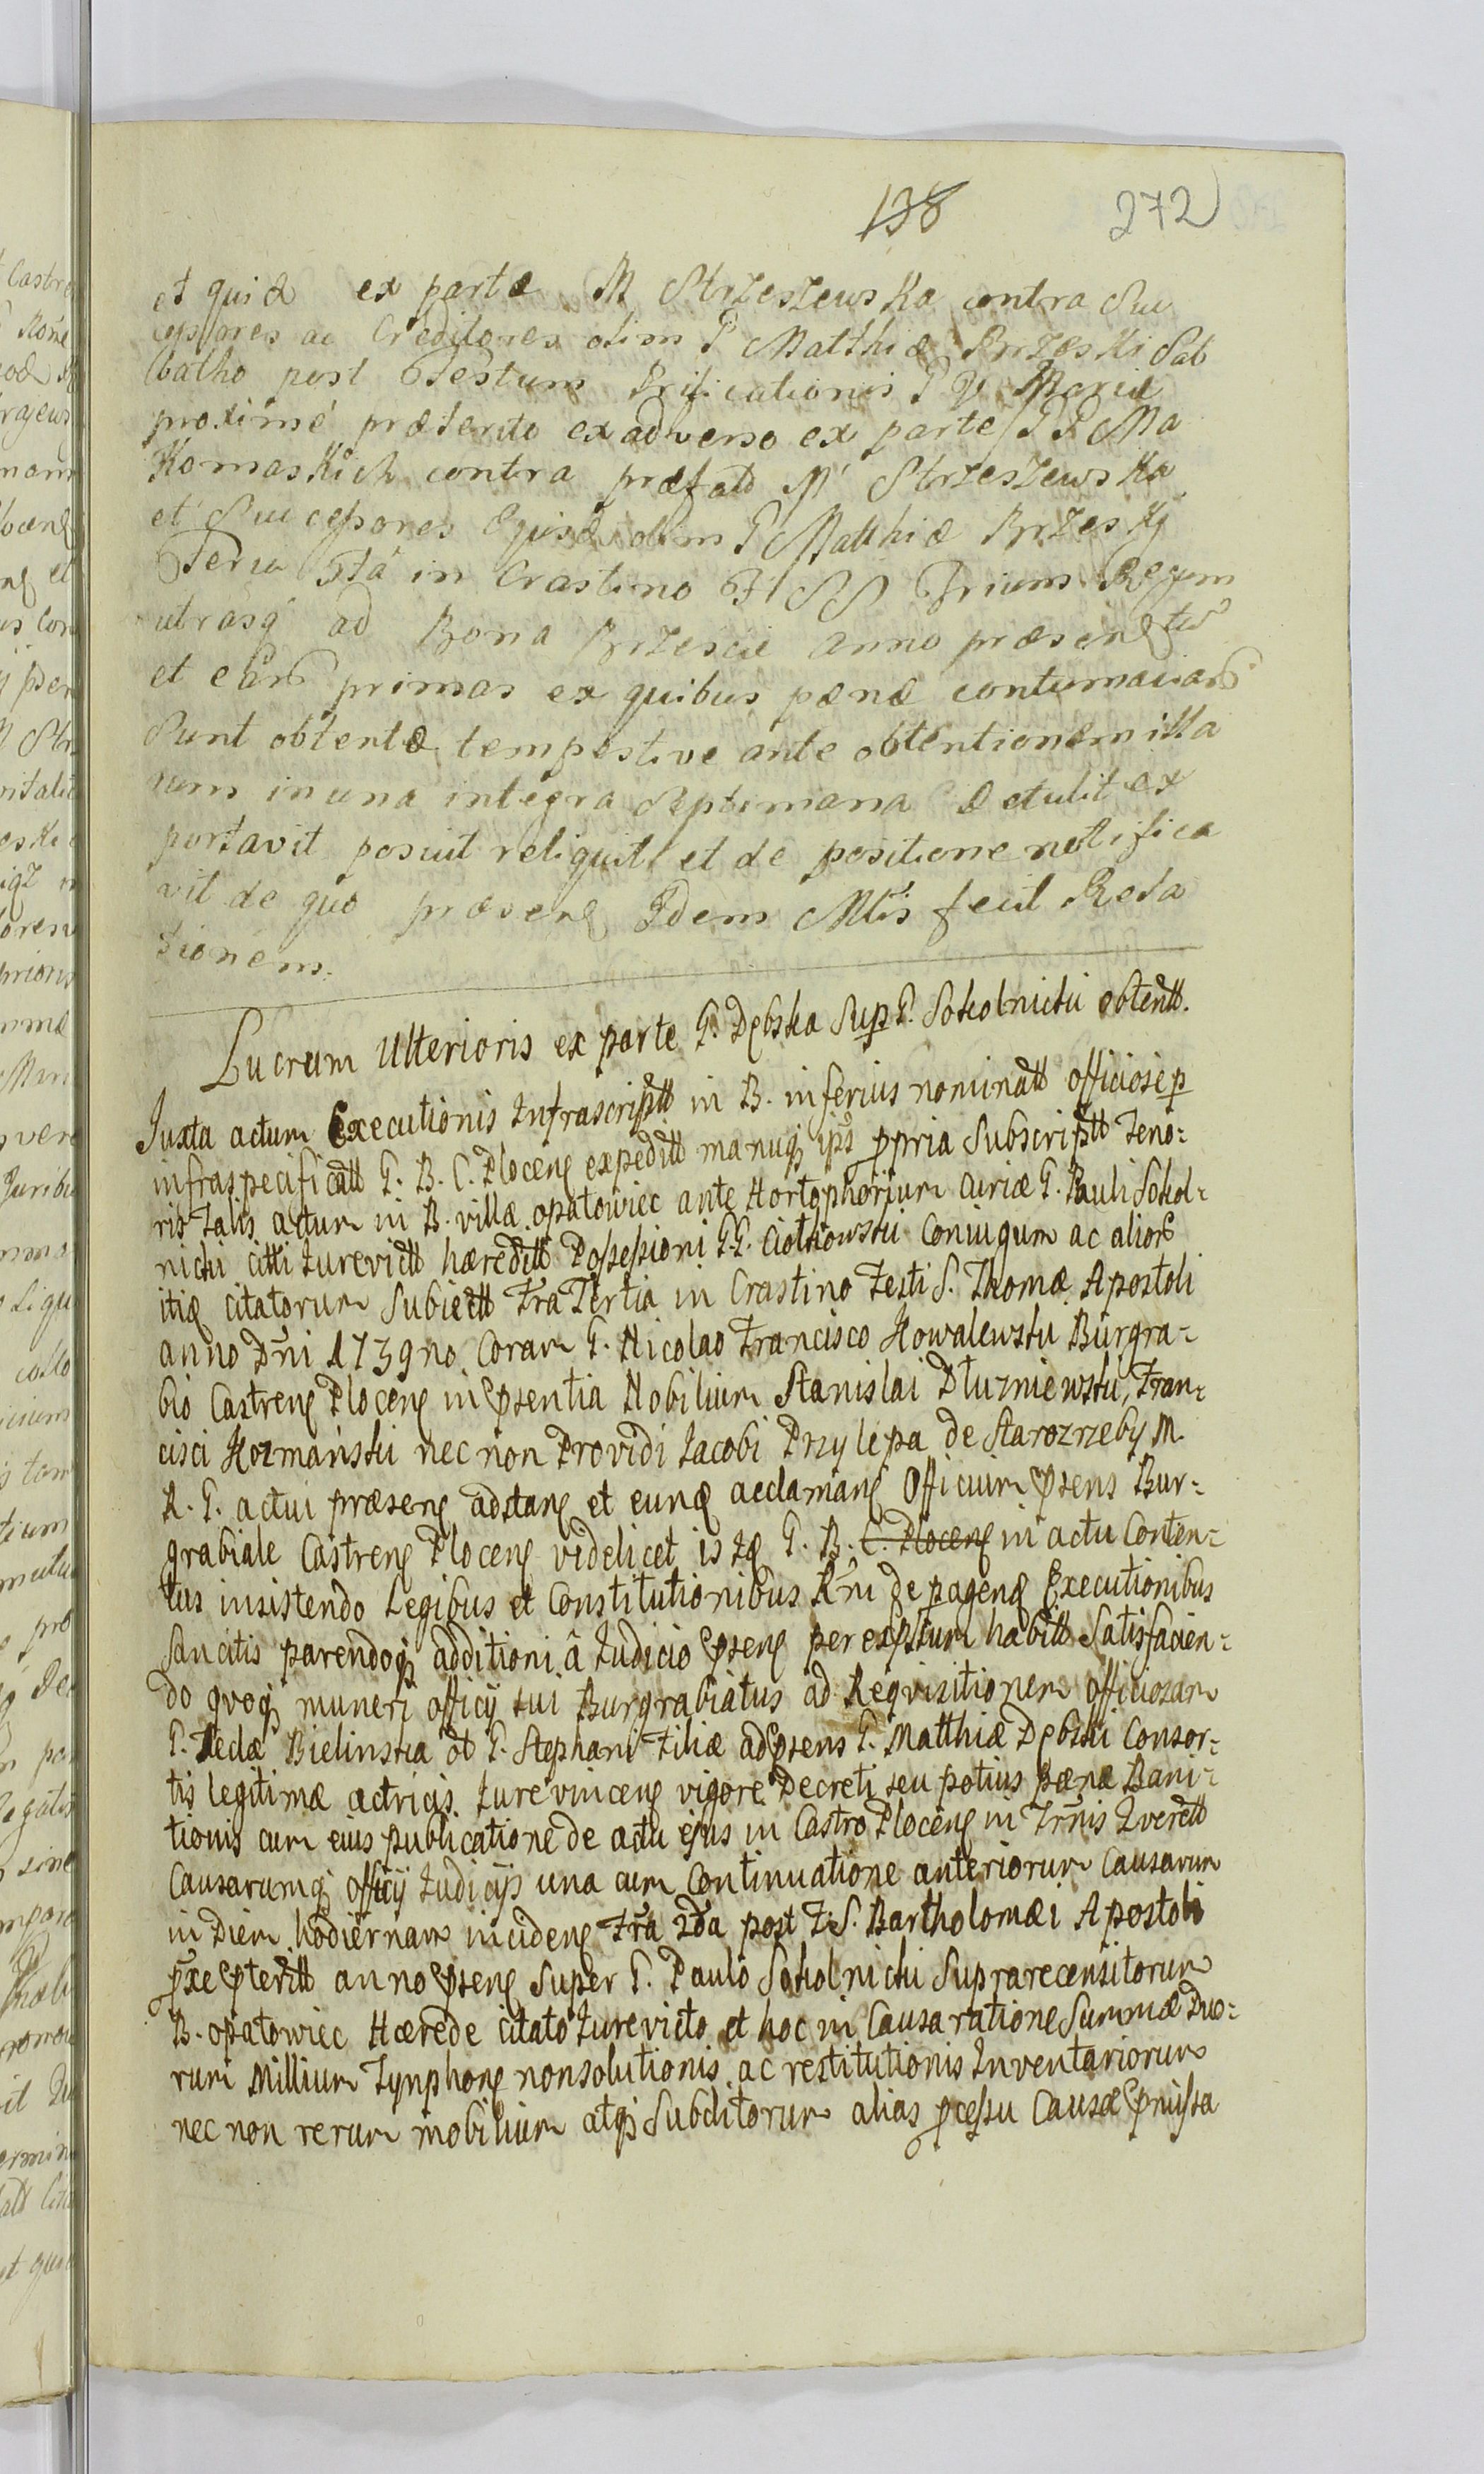 138 272
et quid ex parte M Strzeszewska contra Suc
cessores ac Creditores olim G Matthiæ Brzeski Sab
batho post Festum Prificationis B V Mariæ
proximé præterito ex adverso ex parte GG Ma
Komaskich contra præfatd M Strzeszewska
et Successores Ejusd olim G Matthiæ Brzeskij
Feria 5tâ in Crastino F SS Trium Regum
utrasq ad Bona Brzescie anno præsen
et primas ex quibus pænæ contumaciar
Sunt obtentæ tempestive ante obtentionem illa
rum in una integra Septimana detulit ex
portavit posuit reliquit et de positione notifica
vit de quo præsen Idem Mtis fecit Rela
tionem.
Lucrum Ulterioris ex parte G. Dębska Sup G. Sokolnicki obtentt.
Juxta actum Executionis Infrascriptt in B. inferius nominatt officiose p
infraspecificatt G. B. C. Plocen expeditt manuq ips ppria Subscriptt Teno=
ris Talis actum in B. villæ opatowiec ante Hortophorium curiæ G. Pauli Sokol=
nicki citti Jurevictt hæreditt Possessioni G.G. Ciołkowski Coniugum ac alior
itiq citatorum Subiectt Fra Tertia in Crastino Festi S. Thomæ Apostoli
anno Dni 1739no Coram G. Nicolao Francisco Kowalewski Burgra=
bio Castren Plocen in psentia Nobilium Stanislai Dłuzniewski, Fran=
cisci Kozmański nec non Providi Jacobi Przylepa de Starozrzeby M.
R. G. actui præsen adstan et eund acclaman Officium psens Bur=
grabiale Castren Plocen videlicet is Id G. B. C. Plocen in actu Conten=
tus insistendo Legibus et Constitutionibus Rni de pagend Executionibus
Sancitis parendoq additioni â Judicio psen per expssum habitt Satisfacien=
do qvoq muneri officij sui Burgrabiatus ad Reqvisitionem officiosam
G. Teclæ Bielinska ol G. Stephani Filiæ ad psens G. Matthiæ Dębski Consor=
tis legitimæ actricis Jure vincen vigore Decreti seu potius pænæ Bani=
tionis cum eius publicatione de actu ejus in Castro Plocen in Trnis Qverett
Causarumq officij Judicijs una cum Continuatione anteriorum Causarum
in Diem hodiernam inciden Fra 2da post F. S. Bartholomæi Apostoli
pxe pteritt anno psen Super G. Paulo Sokolnicki Suprarecensitorum
B. opatowiec Hærede citato Jurevicto et hoc in Causa ratione Summæ Duo=
rum Millium Tynphon nonsolutionis ac restitutionis Inventariorum
nec non rerum mobilium atq Subditorum alias pcessu Causæ pmissa